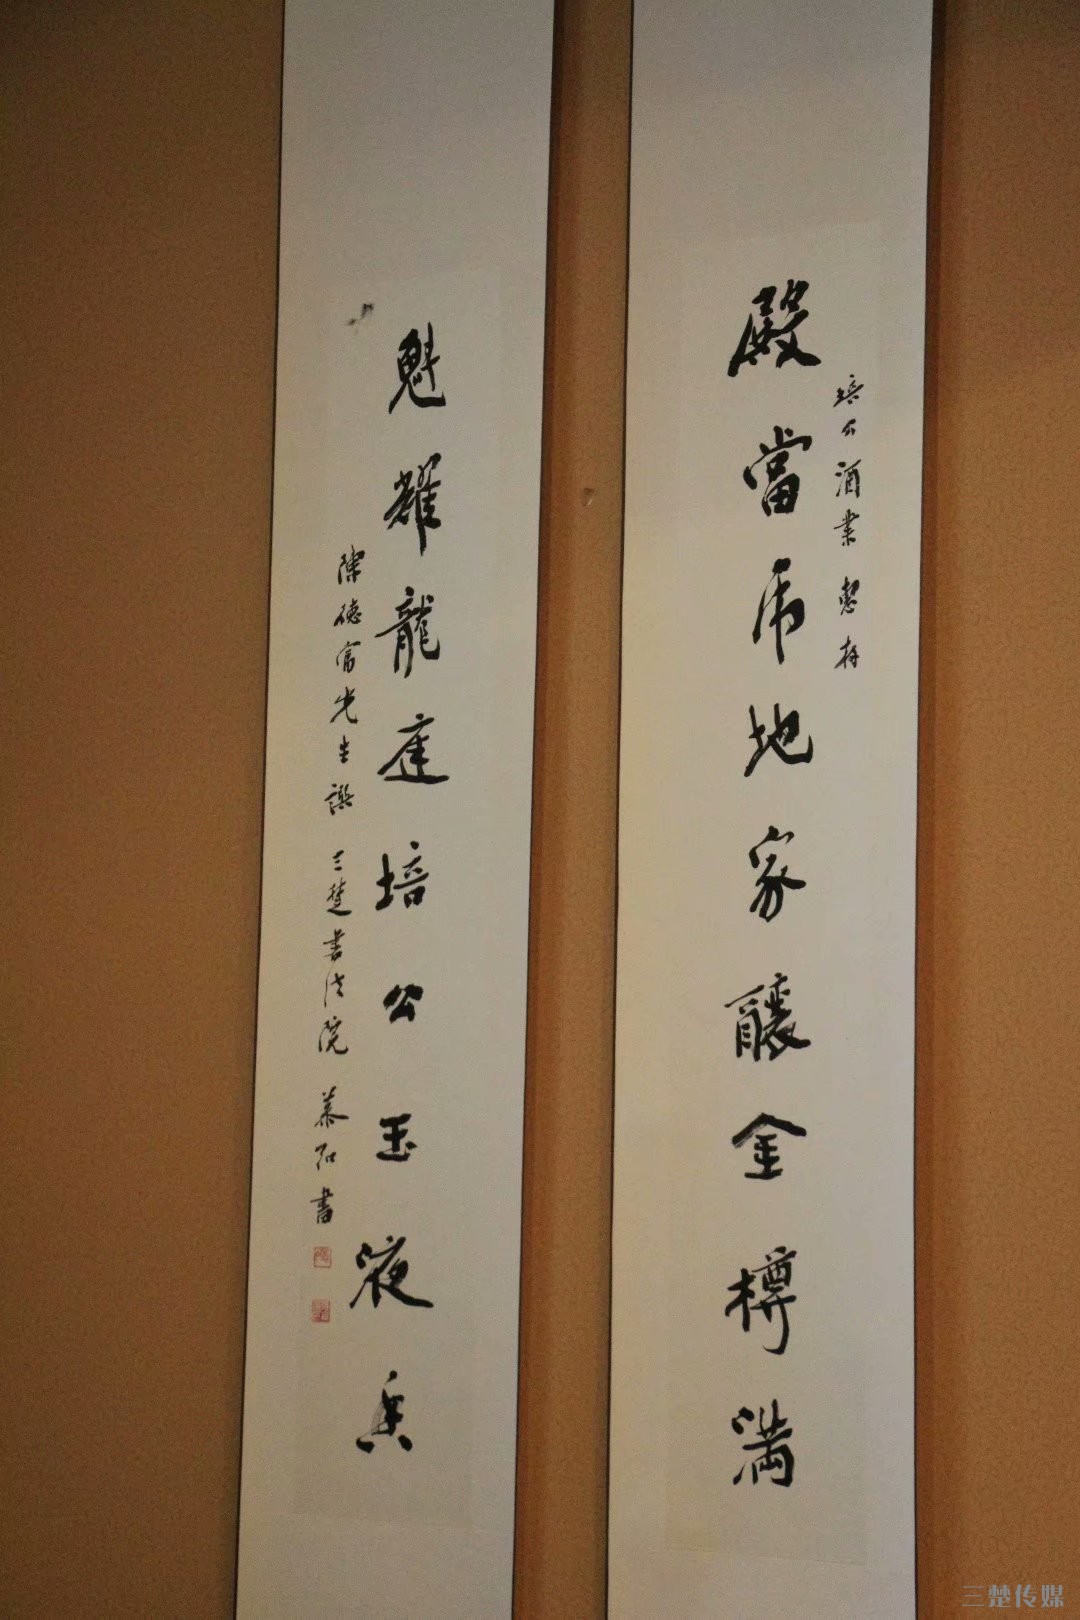 殿當虎地家釀金樽滿
培公酒業惠存
魁耀龍廷培公玉液香
陳德富先生譔 三楚書法院 慕石書
三楚传媒